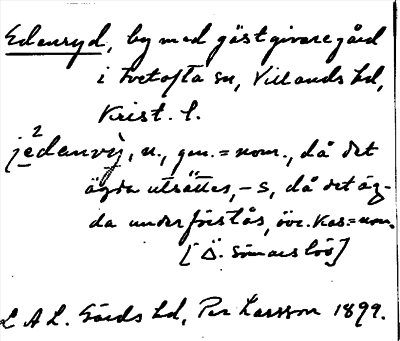 Edenryd, by med gästgivaregård
i Ivetofta sn, Villands hd,
Krist. l.
2
jedenvy, n., gen. = nom., då det
ägda utsättes, -s, då det äg-
da underförstås, övr. kas. = nom.
[Ö. Sönnarslöv]
L A L. Gärds hd, Per Larsson 1899.